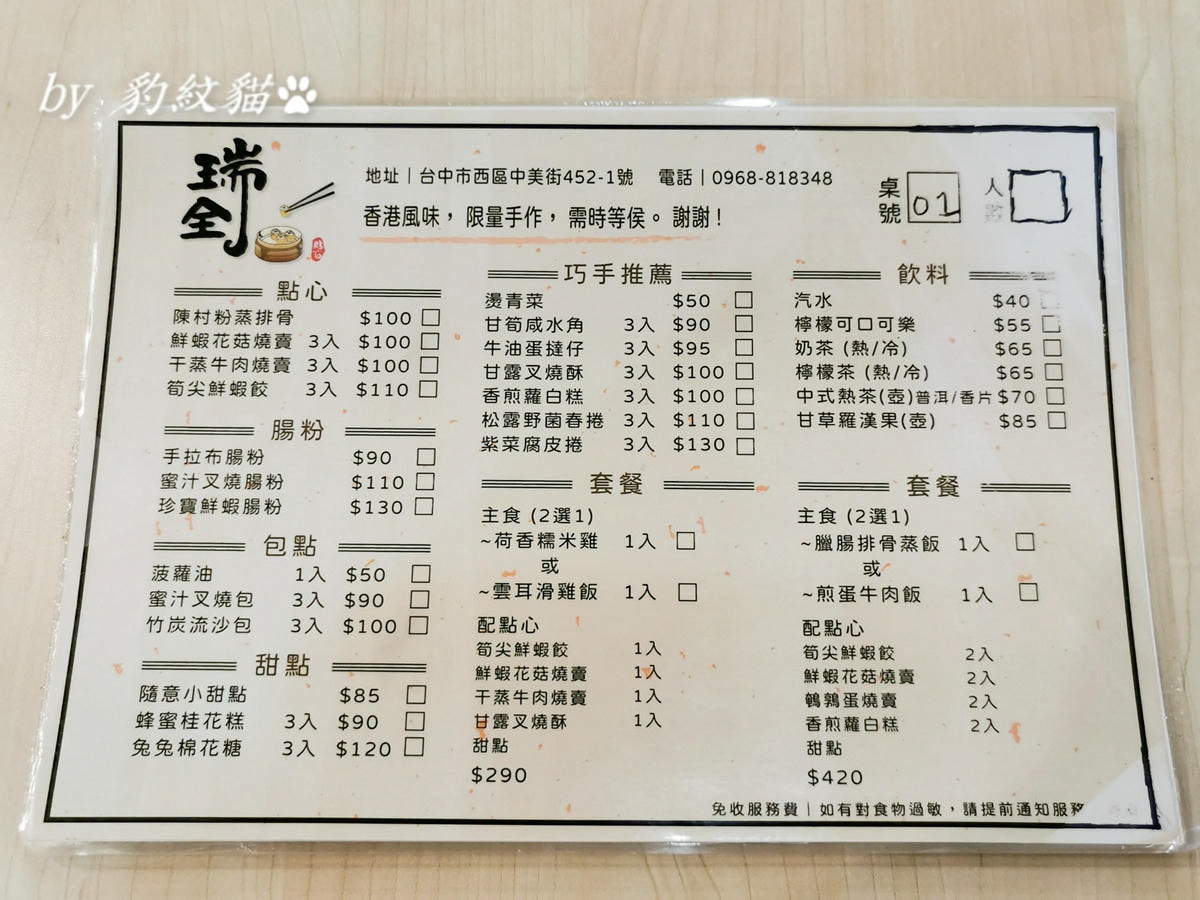 by 豹紋貓
瑞全
點心
地址｜台中市西區中美街452-1號 電話｜0968-818348
香港風味，限量手作，需時等侯。謝謝！
桌號 01
人數
點心
陳村粉蒸排骨 $100 □
鮮蝦花菇燒賣 3入 $100 □
干蒸牛肉燒賣 3入 $100 □
筍尖鮮蝦餃 3入 $110 □
腸粉
手拉布腸粉 $90 □
蜜汁叉燒腸粉 $110 □
珍寶鮮蝦腸粉 $130 □
包點
菠蘿油 1入 $50 □
蜜汁叉燒包 3入 $90 □
竹炭流沙包 3入 $100 □
甜點
隨意小甜點 $85 □
蜂蜜桂花糕 3入 $90 □
兔兔棉花糖 3入 $120 □
巧手推薦
燙青菜 $50 □
甘筍咸水角 3入 $90 □
牛油蛋撻仔 3入 $95 □
甘露叉燒酥 3入 $100 □
香煎蘿白糕 3入 $100 □
松露野菌春捲 3入 $110 □
紫菜腐皮捲 3入 $130 □
套餐
主食 (2選1)
~荷香糯米雞 1入 □
或
~雲耳滑雞飯 1入 □
配點心
筍尖鮮蝦餃 1入
鮮蝦花菇燒賣 1入
干蒸牛肉燒賣 1入
甘露叉燒酥 1入
甜點
$290
飲料
汽水 $40 □
檸檬可口可樂 $55 □
奶茶 (熱/冷) $65 □
檸檬茶 (熱/冷) $65 □
中式熱茶(壺)普洱/香片 $70 □
甘草羅漢果(壺) $85 □
套餐
主食 (2選1)
~臘腸排骨蒸飯 1入 □
或
~煎蛋牛肉飯 1入 □
配點心
筍尖鮮蝦餃 2入
鮮蝦花菇燒賣 2入
鵪鶉蛋燒賣 2入
香煎蘿白糕 2入
甜點
$420
免收服務費｜如有對食物過敏，請提前通知服務